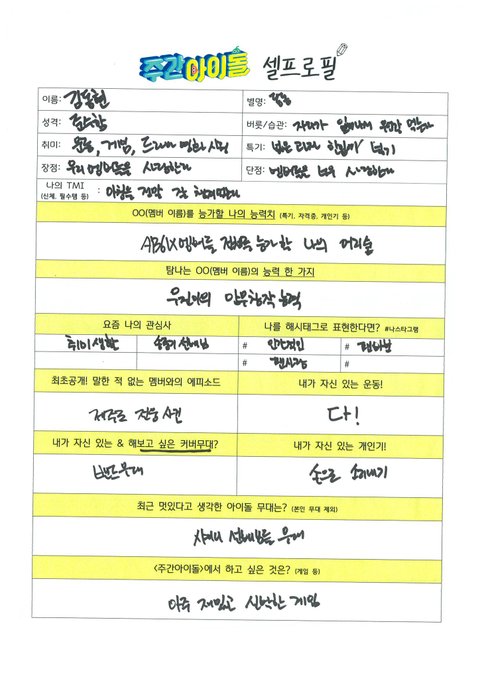 주간아이돌 셀프로필
이름: 김동현 별명:
성격: 순수함 버릇/습관: 자다가 일어나서 뭔가 먹는다
취미: 운동, 게임, 드라마 영화 시청 특기: 한입에 넣기
장점: 우리 멤버들을 사랑한다 단점: 멤버들을 너무 사랑한다
나의 TMI
(신체, 필수템 등) : 아침을 정말 잘 챙겨먹는다
OO(멤버 이름)를 능가할 나의 능력치 (특기, 자격증, 개인기 등)
AB6IX 멤버들 전원을 능가할 나의 먹기술
탐나는 OO(멤버 이름)의 능력 한 가지
우진이의 안무창작 능력
요즘 나의 관심사 나를 해시태그로 표현한다면? #나스타그램
취미 생활 # 인간적인 # 팬바보
# 팬사랑 #
최초공개! 말한 적 없는 멤버와의 에피소드 내가 자신 있는 운동!
제주도 사건 다!
내가 자신 있는 & 해보고 싶은 커버무대? 내가 자신 있는 개인기!
밴드무대 손으로 소리내기
최근 멋있다고 생각한 아이돌 무대는? (본인 무대 제외)
샤이니 선배님들 무대
<주간아이돌>에서 하고 싶은 것은? (게임 등)
아주 재밌고 신박한 게임